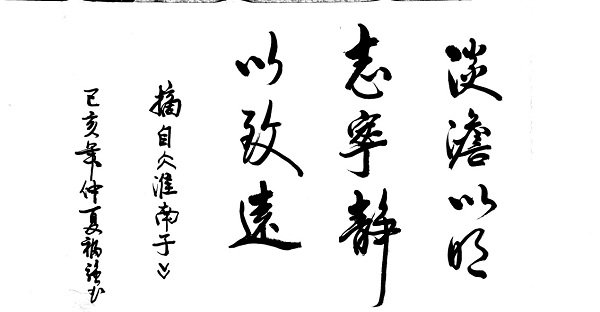 淡澹以明
志寧靜
以致遠
摘自《淮南子》
己亥年仲夏